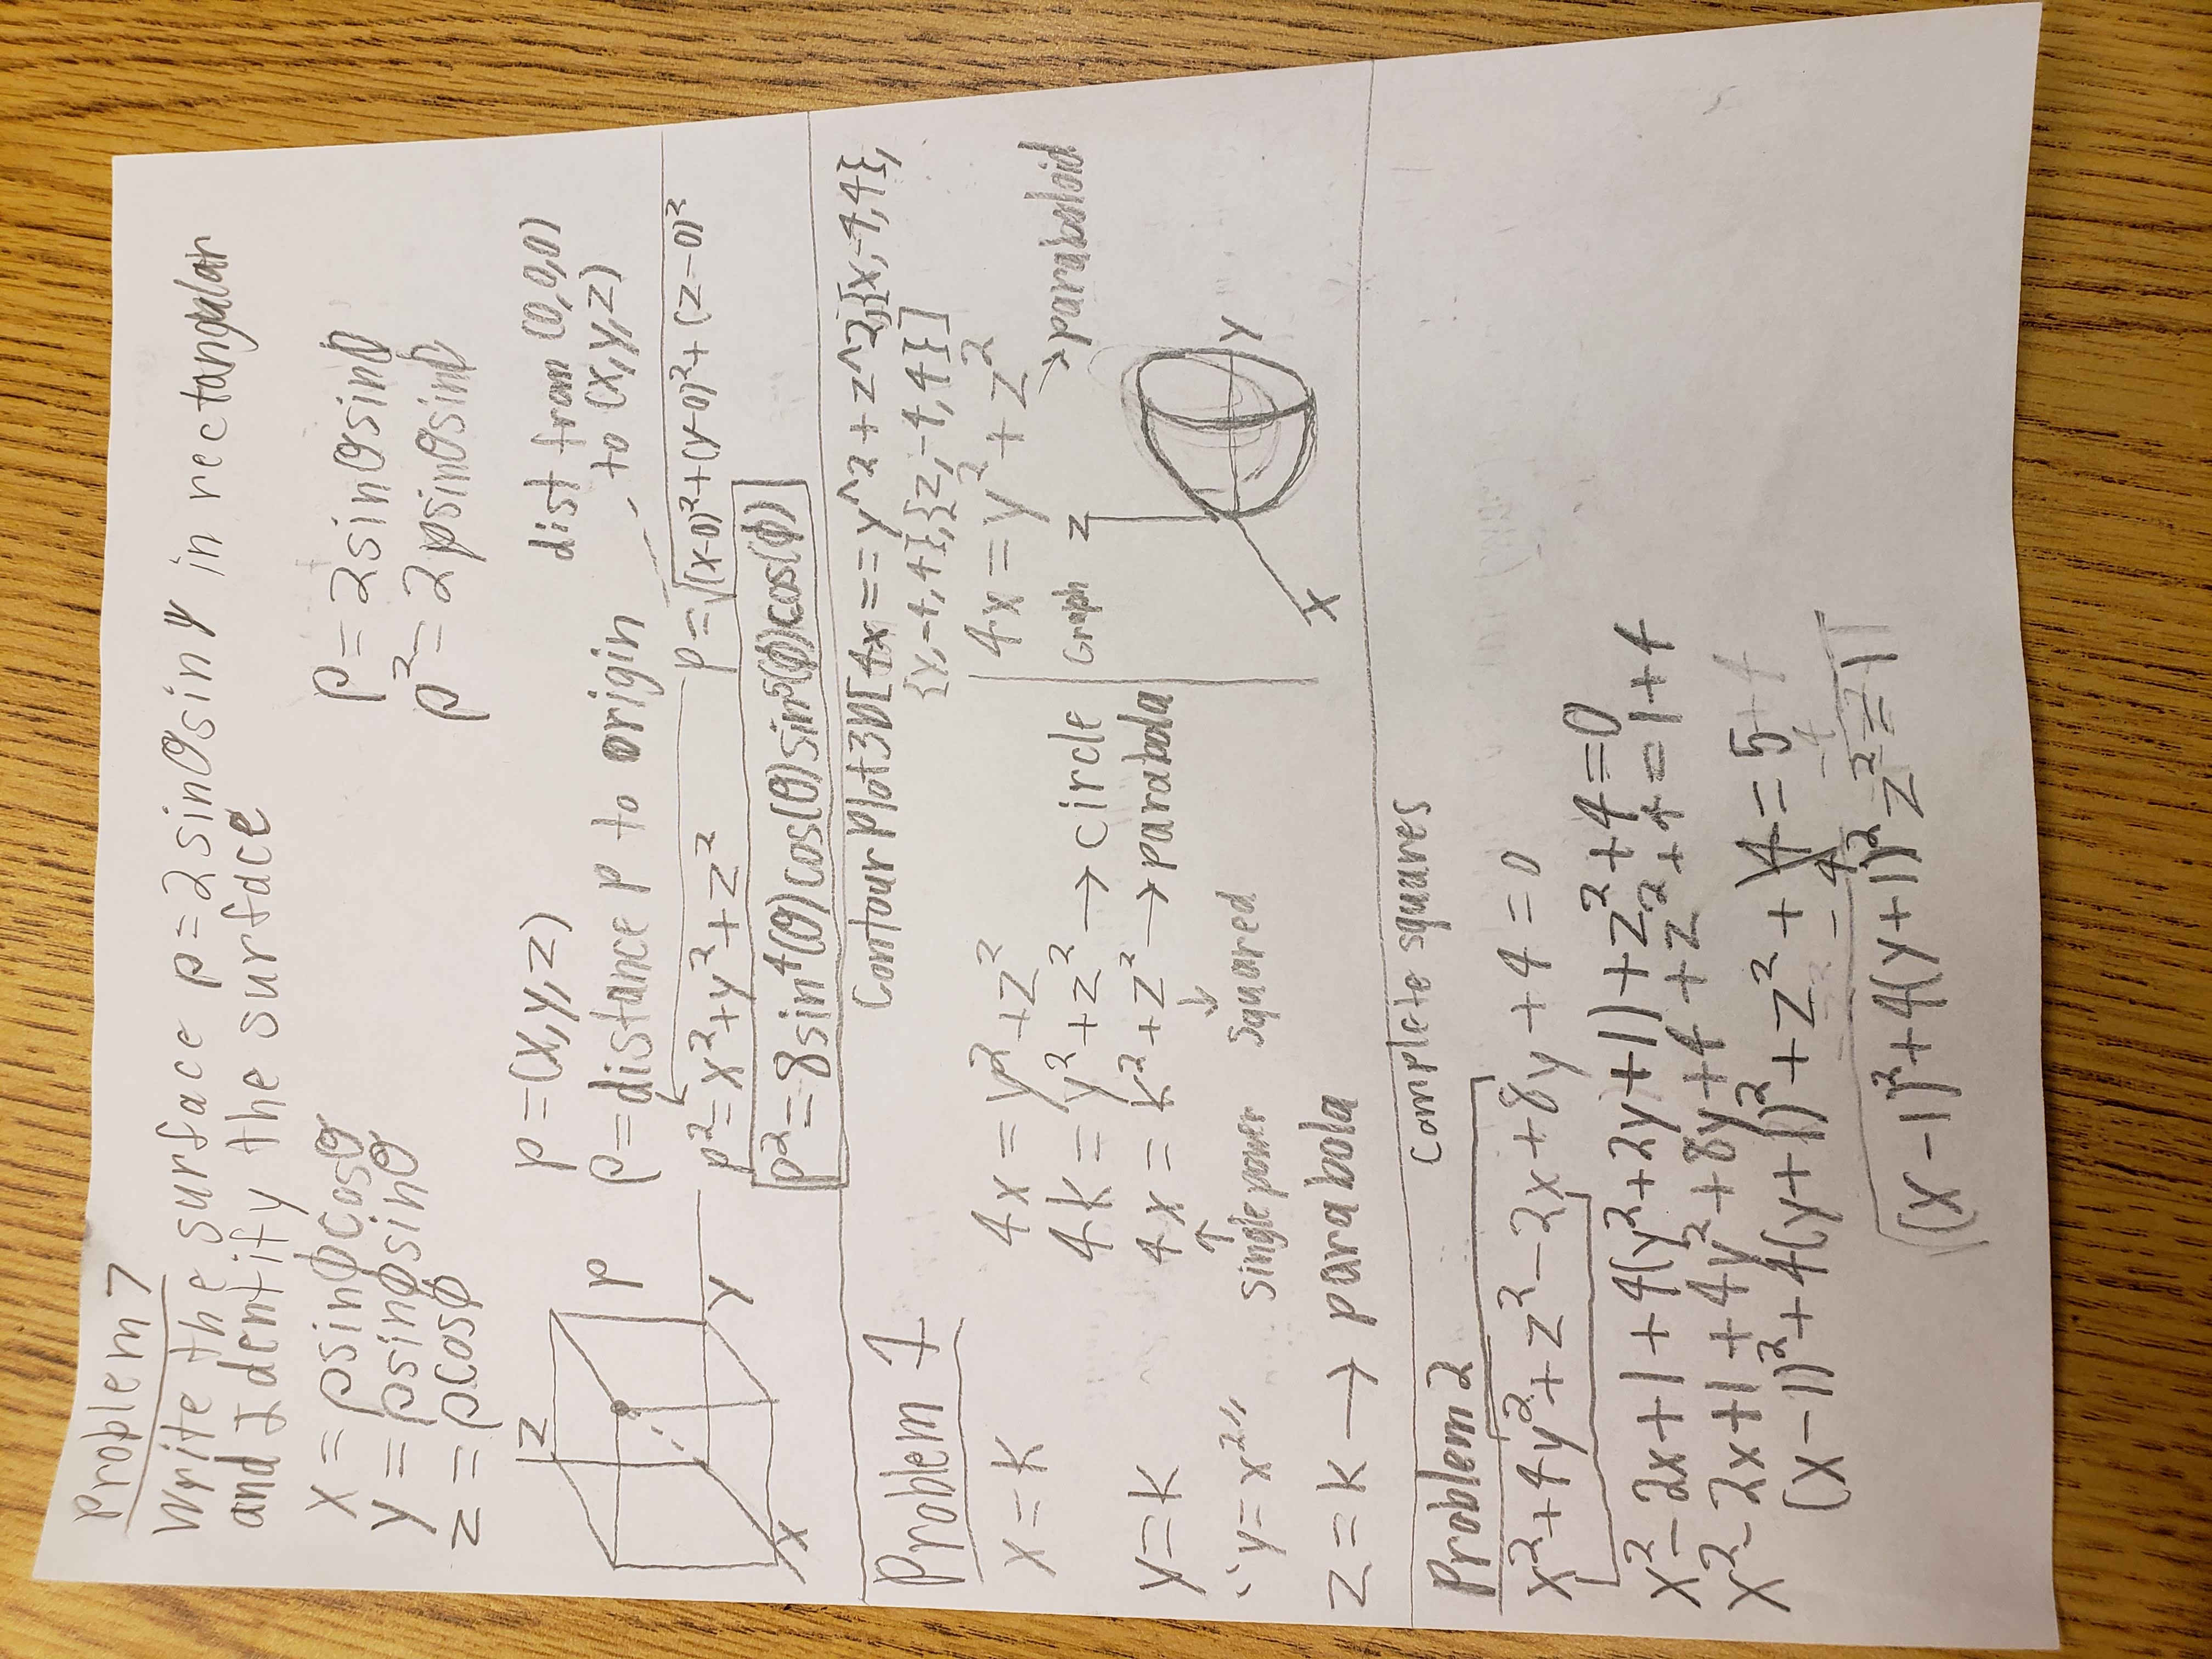 Problem 7
Write the surface ρ=2sinθsinφ in rectangular
and Identify the surface
x = ρsinϕcosθ
y = ρsinϕsinθ
z = ρcosϕ
ρ = 2sinθsinϕ
ρ² = 2ρsinθsinϕ
z
p
y
x
p = (x,y,z)
ρ = distance p to origin
dist from (0,0,0)
to (x,y,z)
ρ² = x²+y²+z²
ρ = √(x-0)²+(y-0)²+(z-0)²
ρ² = 8sin⁴(θ)cos(θ)sin⁵(ϕ)cos(ϕ)
Problem 1
Contour Plot3D[4x == y^2 + z^2,{x,-4,4},
{y,-4,4},{z,-4,4}]
x = k
4x = y² + z²
4k = y² + z² → circle
y = k
4x = k² + z² → parabola
"y = x²"
↑ single power
↓ squared
z = k → parabola
4x = y² + z²
→ paraboloid
Graph
z
y
x
Problem 2
Complete squares
x² + 4y² + z² - 2x + 8y + 4 = 0
x² - 2x + 1 + 4(y² + 2y + 1) + z² + 4 = 0
x² - 2x + 1 + 4y² + 8y + 4 + z² + 4 = 1 + 4
(x-1)² + 4(y+1)² + z² + 4 = 5 + 4
-4 -4
(x-1)² + 4(y+1)² z² = 1